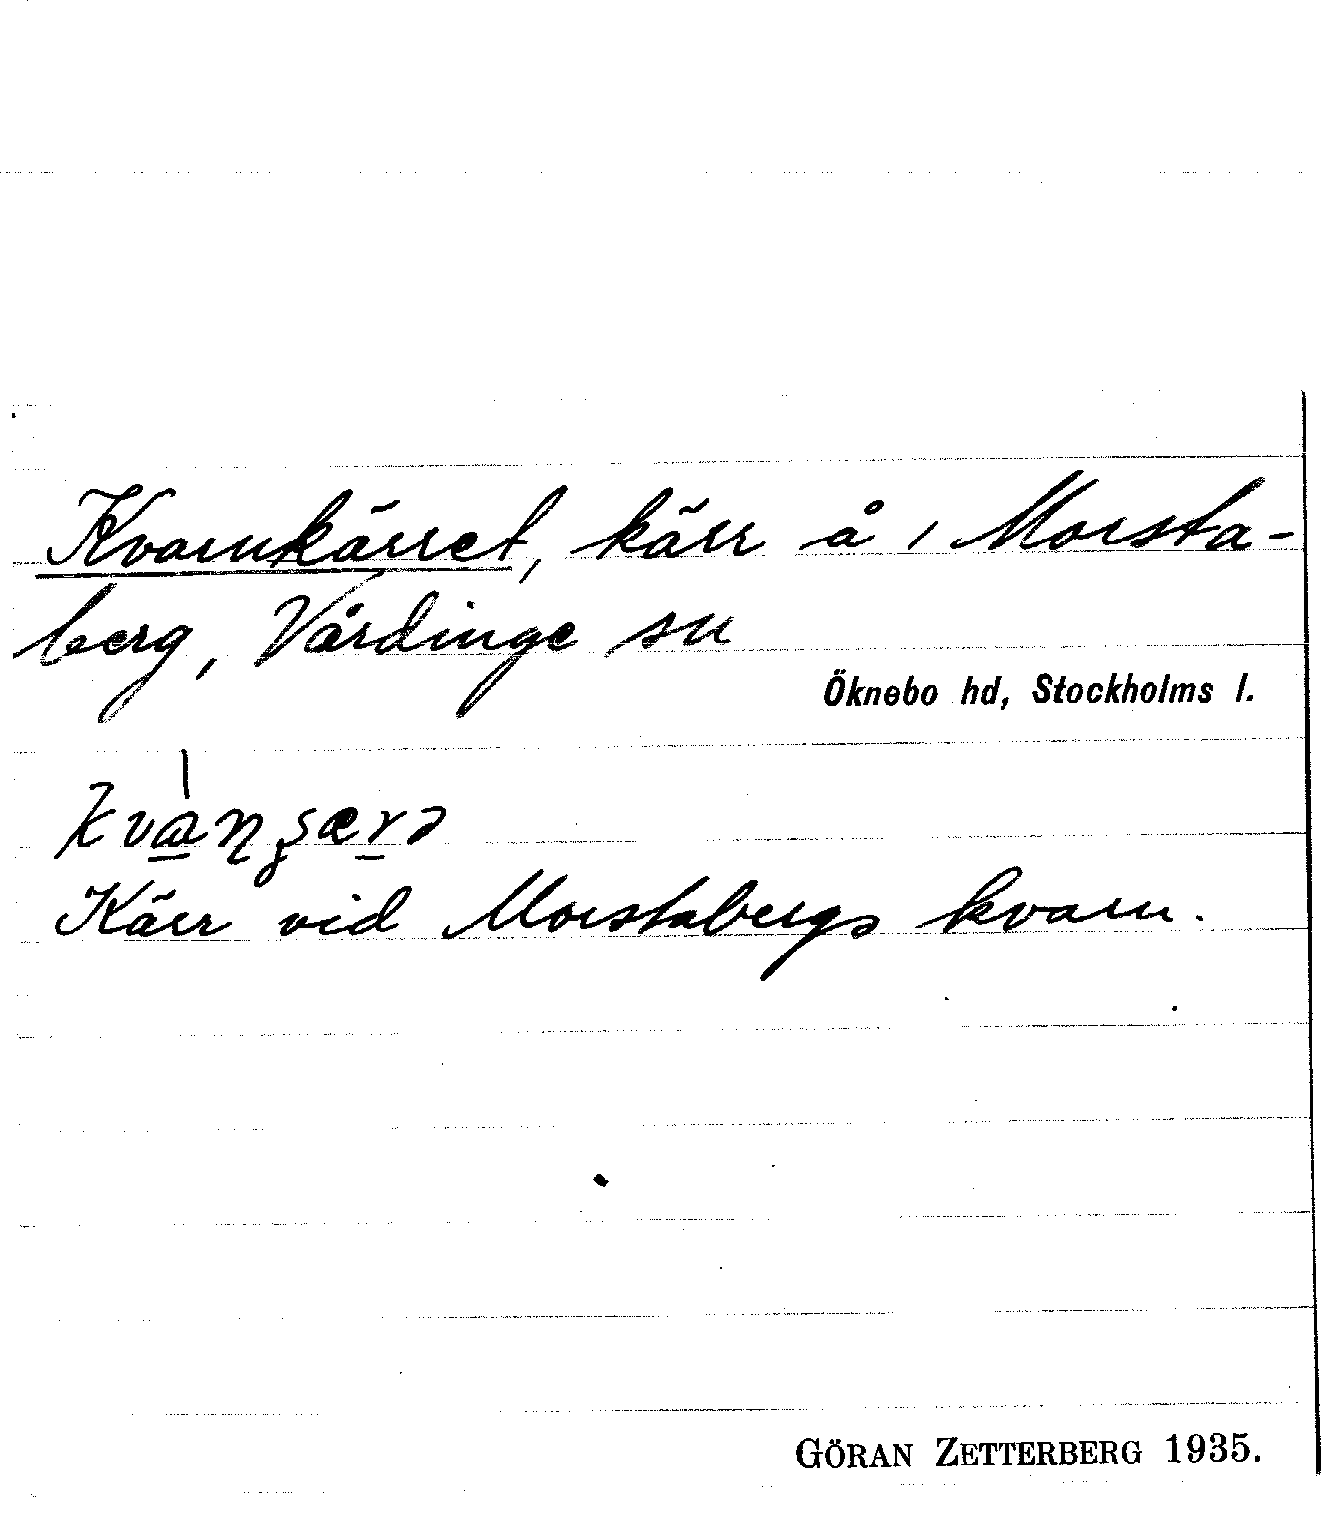 Kvarnkärret, kärr å 1 Morsta-
berg, Vårdinge sn
Öknebo hd, Stockholms l.
Kärr vid Morstabergs kvarn.
GÖRAN ZETTERBERG 1935.